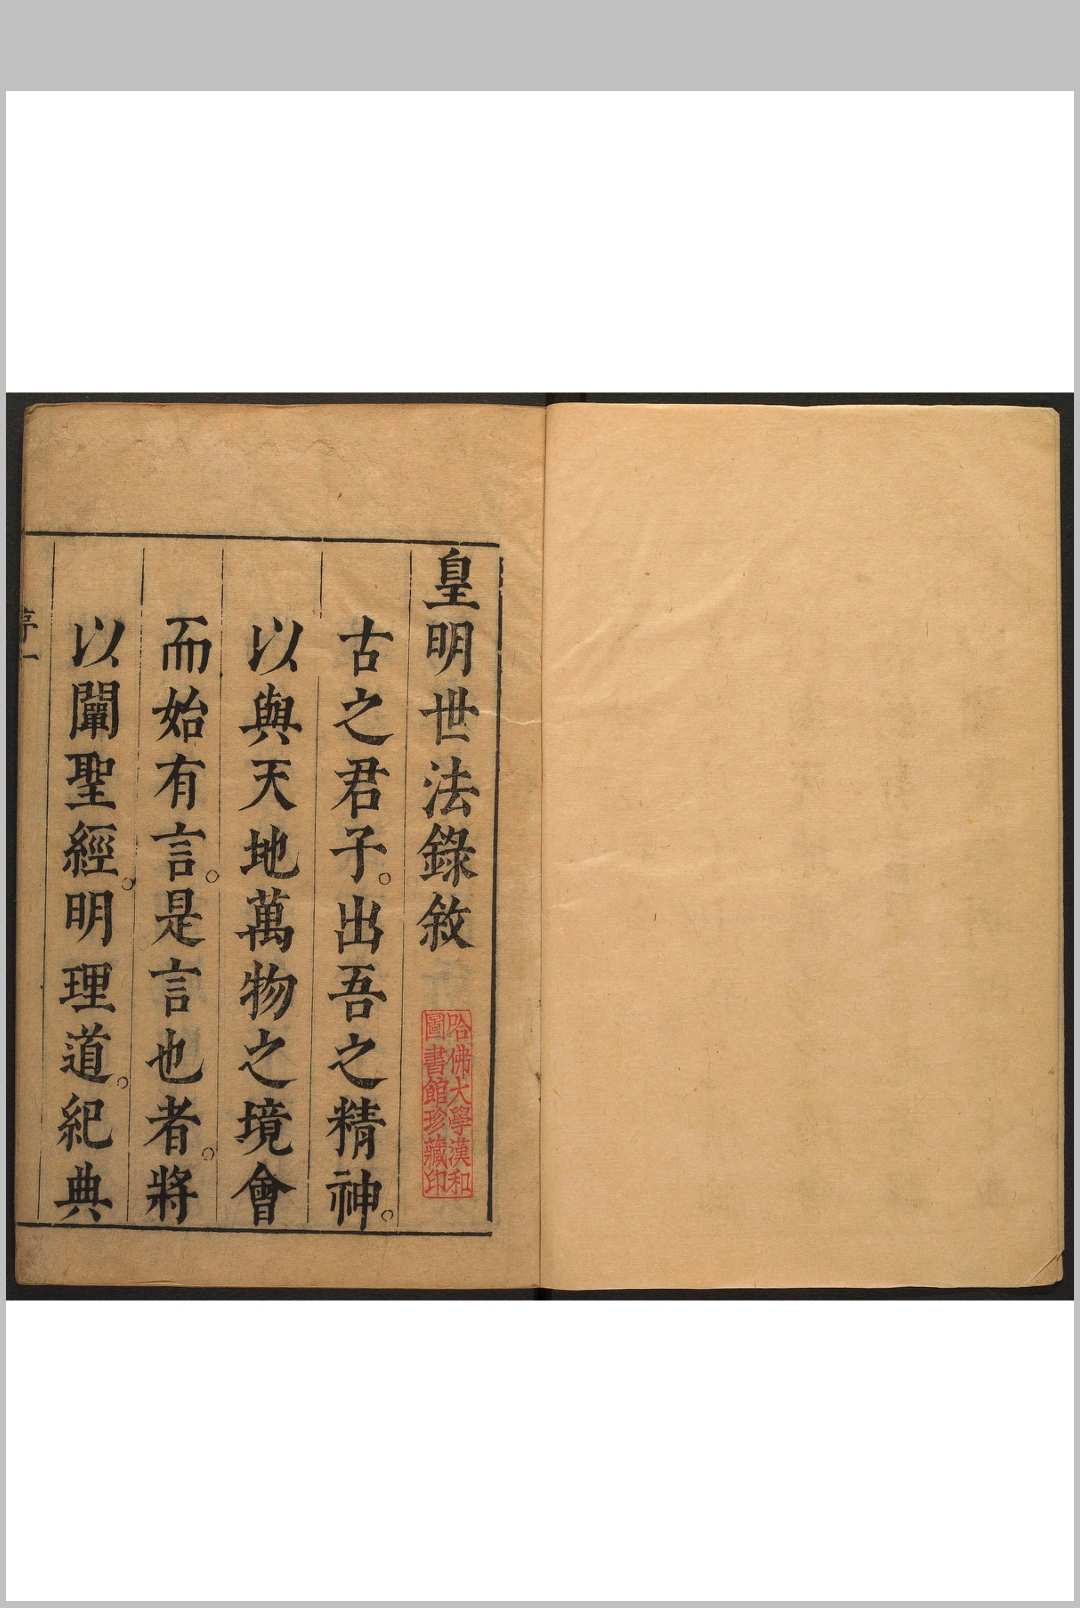 皇明世法錄敘
哈佛大學漢和
圖書館珍藏印
古之君子。出吾之精神。
以與天地萬物之境會
而始有言。是言也者。將
以闡聖經。明理道。紀典
序一